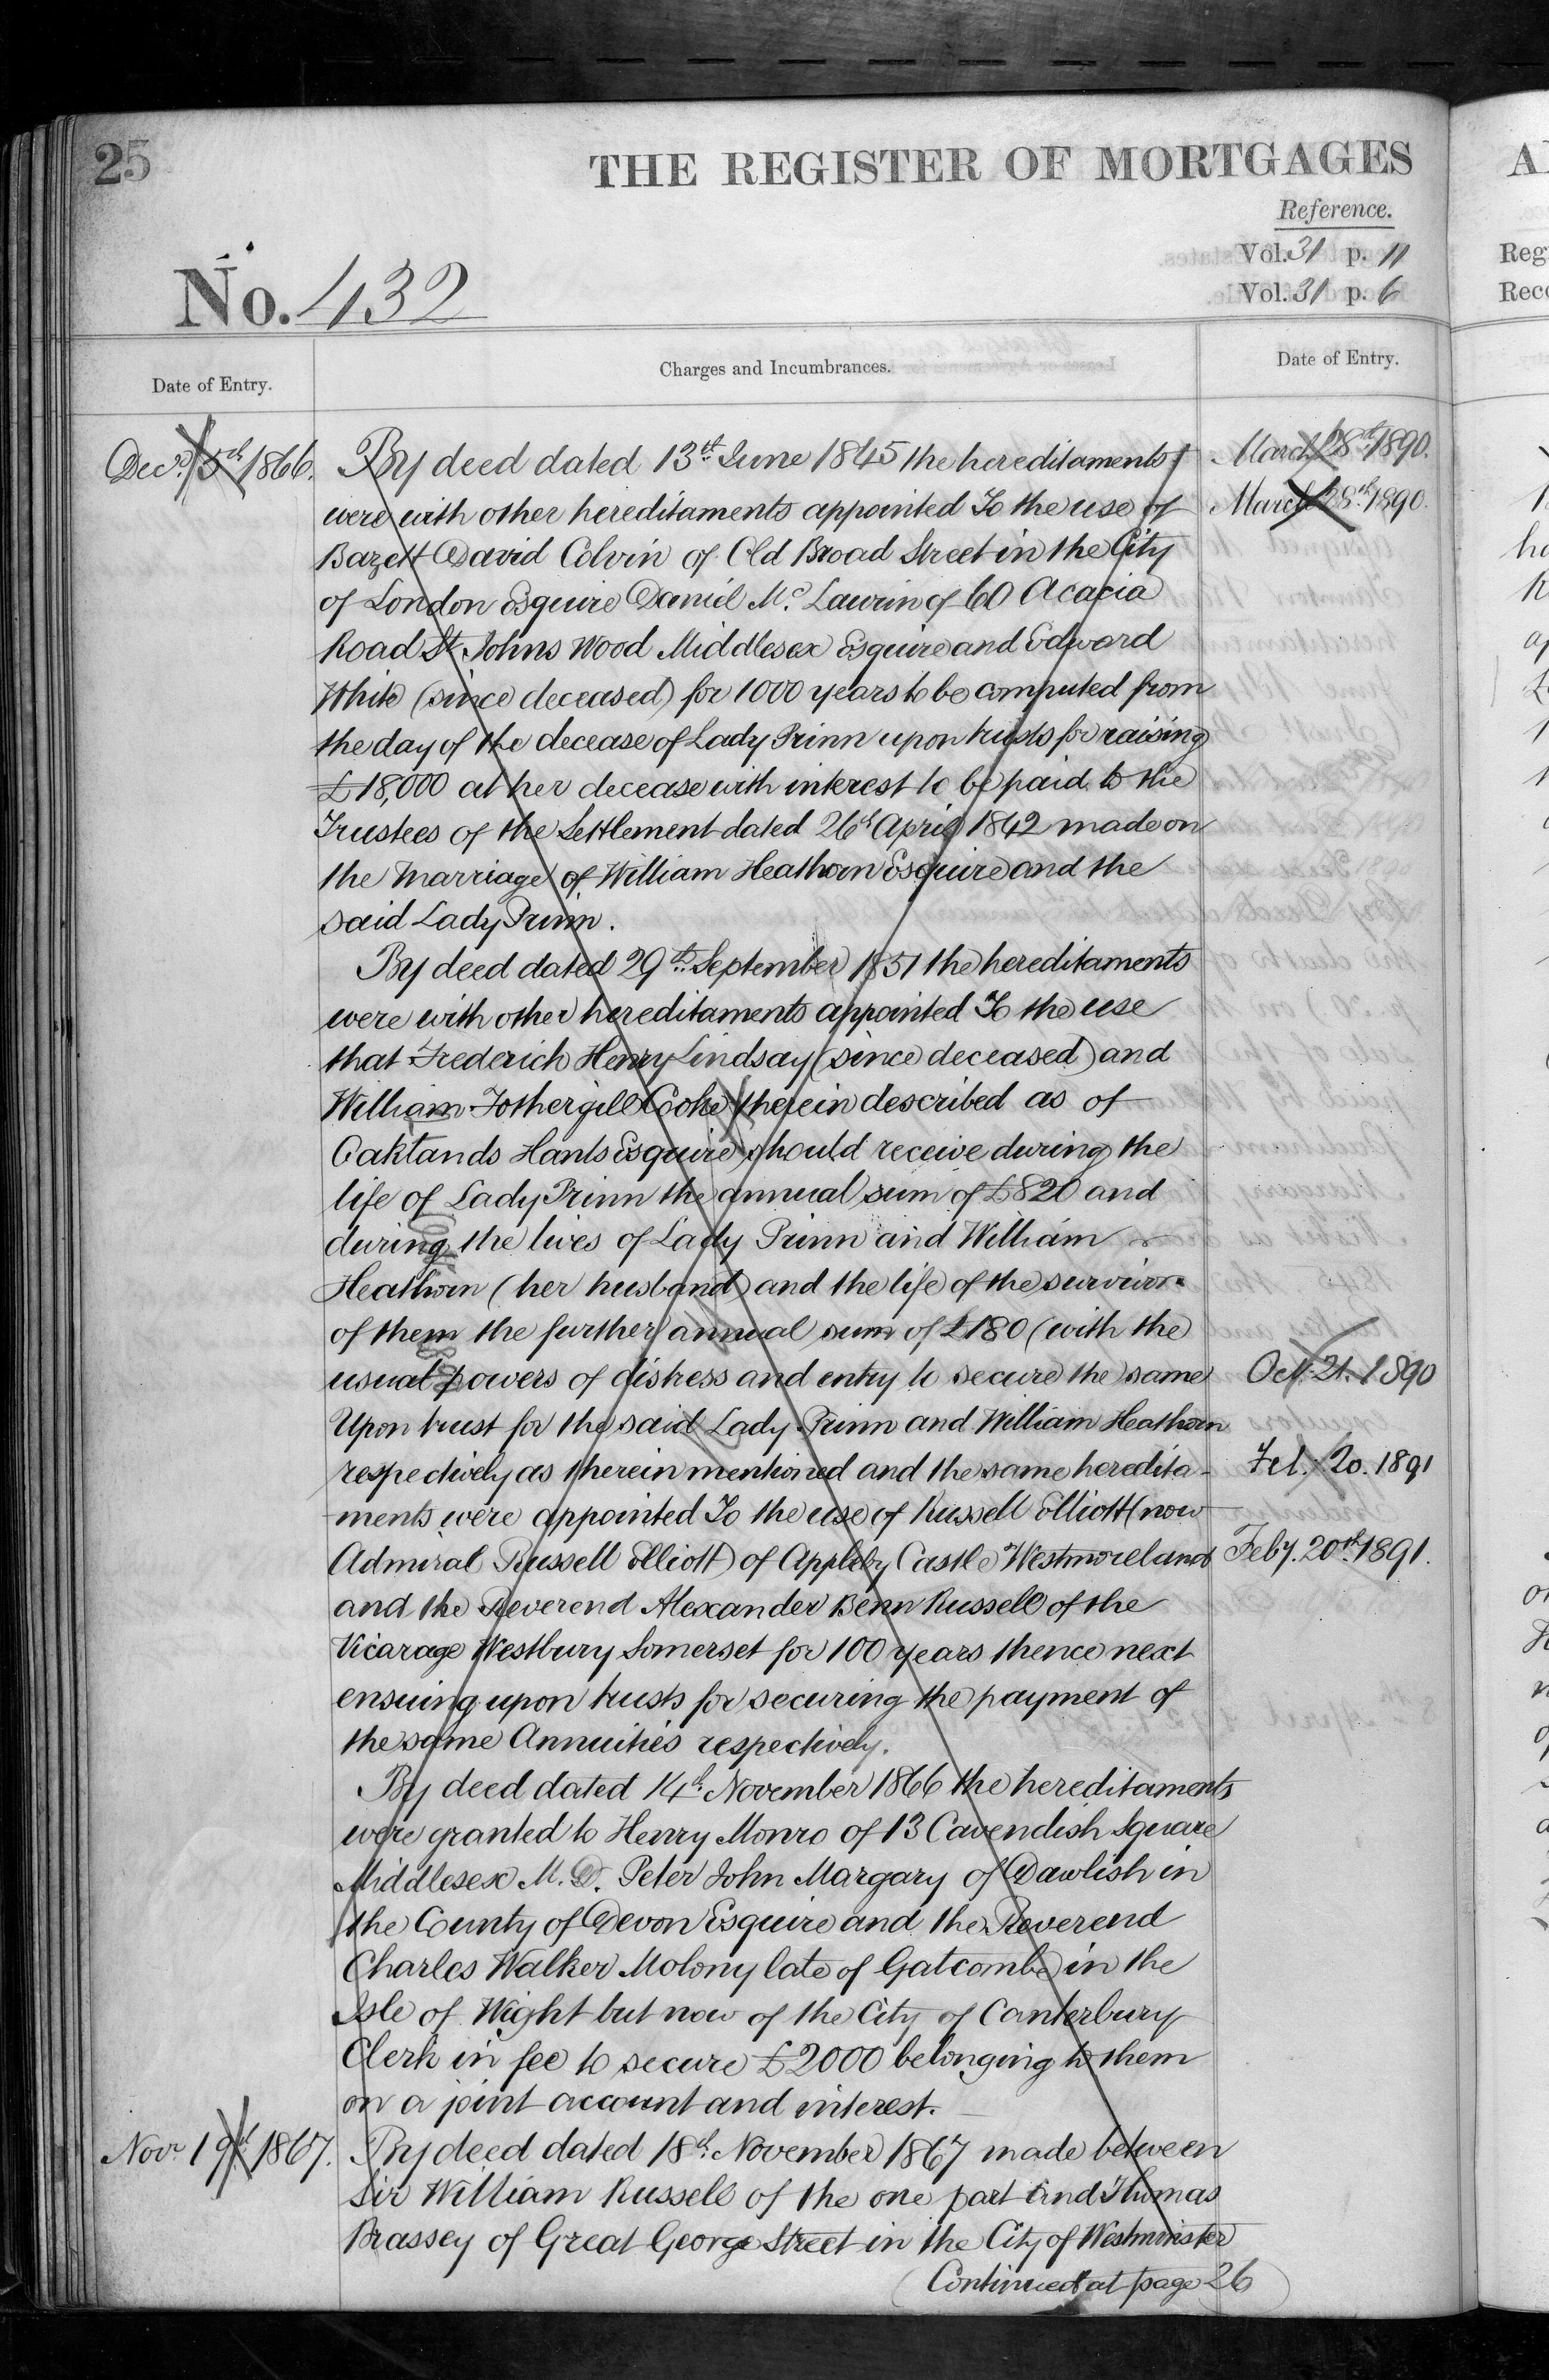 25
THE REGISTER OF MORTGAGES
Reference.
Vol. 31 p. 11
Vol. 31 p. 6
No. 432
Date of Entry.
Charges and Incumbrances.
Date of Entry.
Decr. 5th 1866.
By deed dated 13th June 1845 the hereditaments
were with other hereditaments appointed To the use of
Bazett David Colvin of Old Broad Street in the City
of London Esquire Daniel Mc. Laurin of 60 Acacia
Road St. Johns Wood Middlesex Esquire and Edward
White (since deceased) for 1000 years to be computed from
the day of the decease of Lady Prinn upon trusts for raising
£18,000 at her decease with interest to be paid to the
Trustees of the Settlement dated 26th April 1842 made on
the Marriage of William Heathorn Esquire and the
said Lady Prinn.
By deed dated 29th September 1851 the hereditaments
were with other hereditaments appointed To the use
that Frederick Henry Lindsay (since deceased) and
William Fothergill Cooke (therein described as of
Oaktands Hants Esquire) should receive during the
life of Lady Prinn the annual sum of £820 and
during the lives of Lady Prinn and William
Heathorn (her husband) and the life of the survivor
of them the further annual sum of £180 (with the
usual powers of distress and entry to secure the same
Upon trust for the said Lady Prinn and William Heathorn
respectively as therein mentioned and the same heredita-
ments were appointed To the use of Russell Elliott (now
Admiral Russell Elliott) of Appleby Castle Westmoreland
and the Reverend Alexander Benn Russell of the
Vicarage Westbury Somerset for 100 years thence next
ensuing upon trusts for securing the payment of
the same Annuities respectively.
By deed dated 14th November 1866 the hereditaments
were granted to Henry Monro of 13 Cavendish Square
Middlesex M.D. Peter John Margary of Dawlish in
the County of Devon Esquire and the Reverend
Charles Walker Molony late of Gatcombe in the
Isle of Wight but now of the City of Canterbury
Clerk in fee to secure £2000 belonging to them
on a joint account and interest.
Novr 19th 1867.
By deed dated 18th November 1867 made between
Sir William Russell of the one part and Thomas
Brassey of Great George Street in the City of Westminster
(Continued at page 26)
March 28th 1890.
March 28th 1890.
Oct. 21. 1890
Feb. 20. 1891
Feby. 20th 1891.